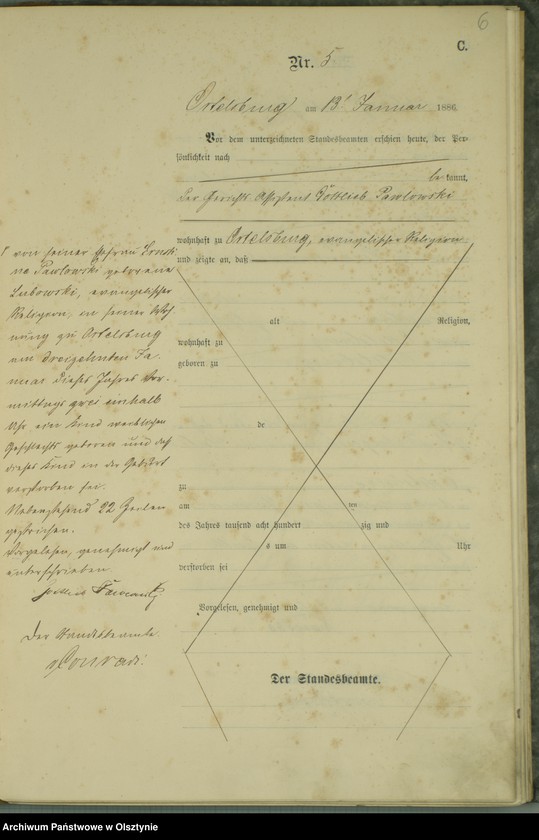 6
C.
Nr. 5
Ortelsburg am 13t Januar 1886.
Vor dem unterzeichneten Standesbeamten erschien heute, der Per-
sönlichkeit nach
bekannt,
der Gerichts Assistent Gottlieb Pawlowski
wohnhaft zu Ortelsburg, evangelischer Religion
und zeigte an, daß
von seiner Ehefrau Ernesti
ne Pawlowski geborene
Lubowski, evangelischer
Religion, in seiner Woh
nung zu Ortelsburg
am dreizehnten Ja-
nuar dieses Jahres Vor-
mittags zwei einhalb
Uhr, ein Kind weiblichen
Geschlechts geboren und daß
dieses Kind in der Geburt
verstorben sei.
Nebenstehend 22 Zeilen
gestrichen.
Vorgelesen, genehmigt und
unterschrieben.
Gottlieb Pawlowski
Der Standesbeamte.
Conradi.
alt Religion,
wohnhaft zu
geboren zu
de
zu
am ten
des Jahres tausend acht hundert zig und
s um Uhr
verstorben sei
Vorgelesen, genehmigt und
Der Standesbeamte.
Archiwum Państwowe w Olsztynie